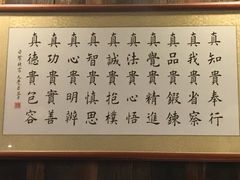 真知貴奉行
真我貴省察
真品貴鍛鍊
真覺貴精進
真法貴心悟
真誠貴抱樸
真智貴慎思
真心貴明辨
真功貴實善
真德貴包容